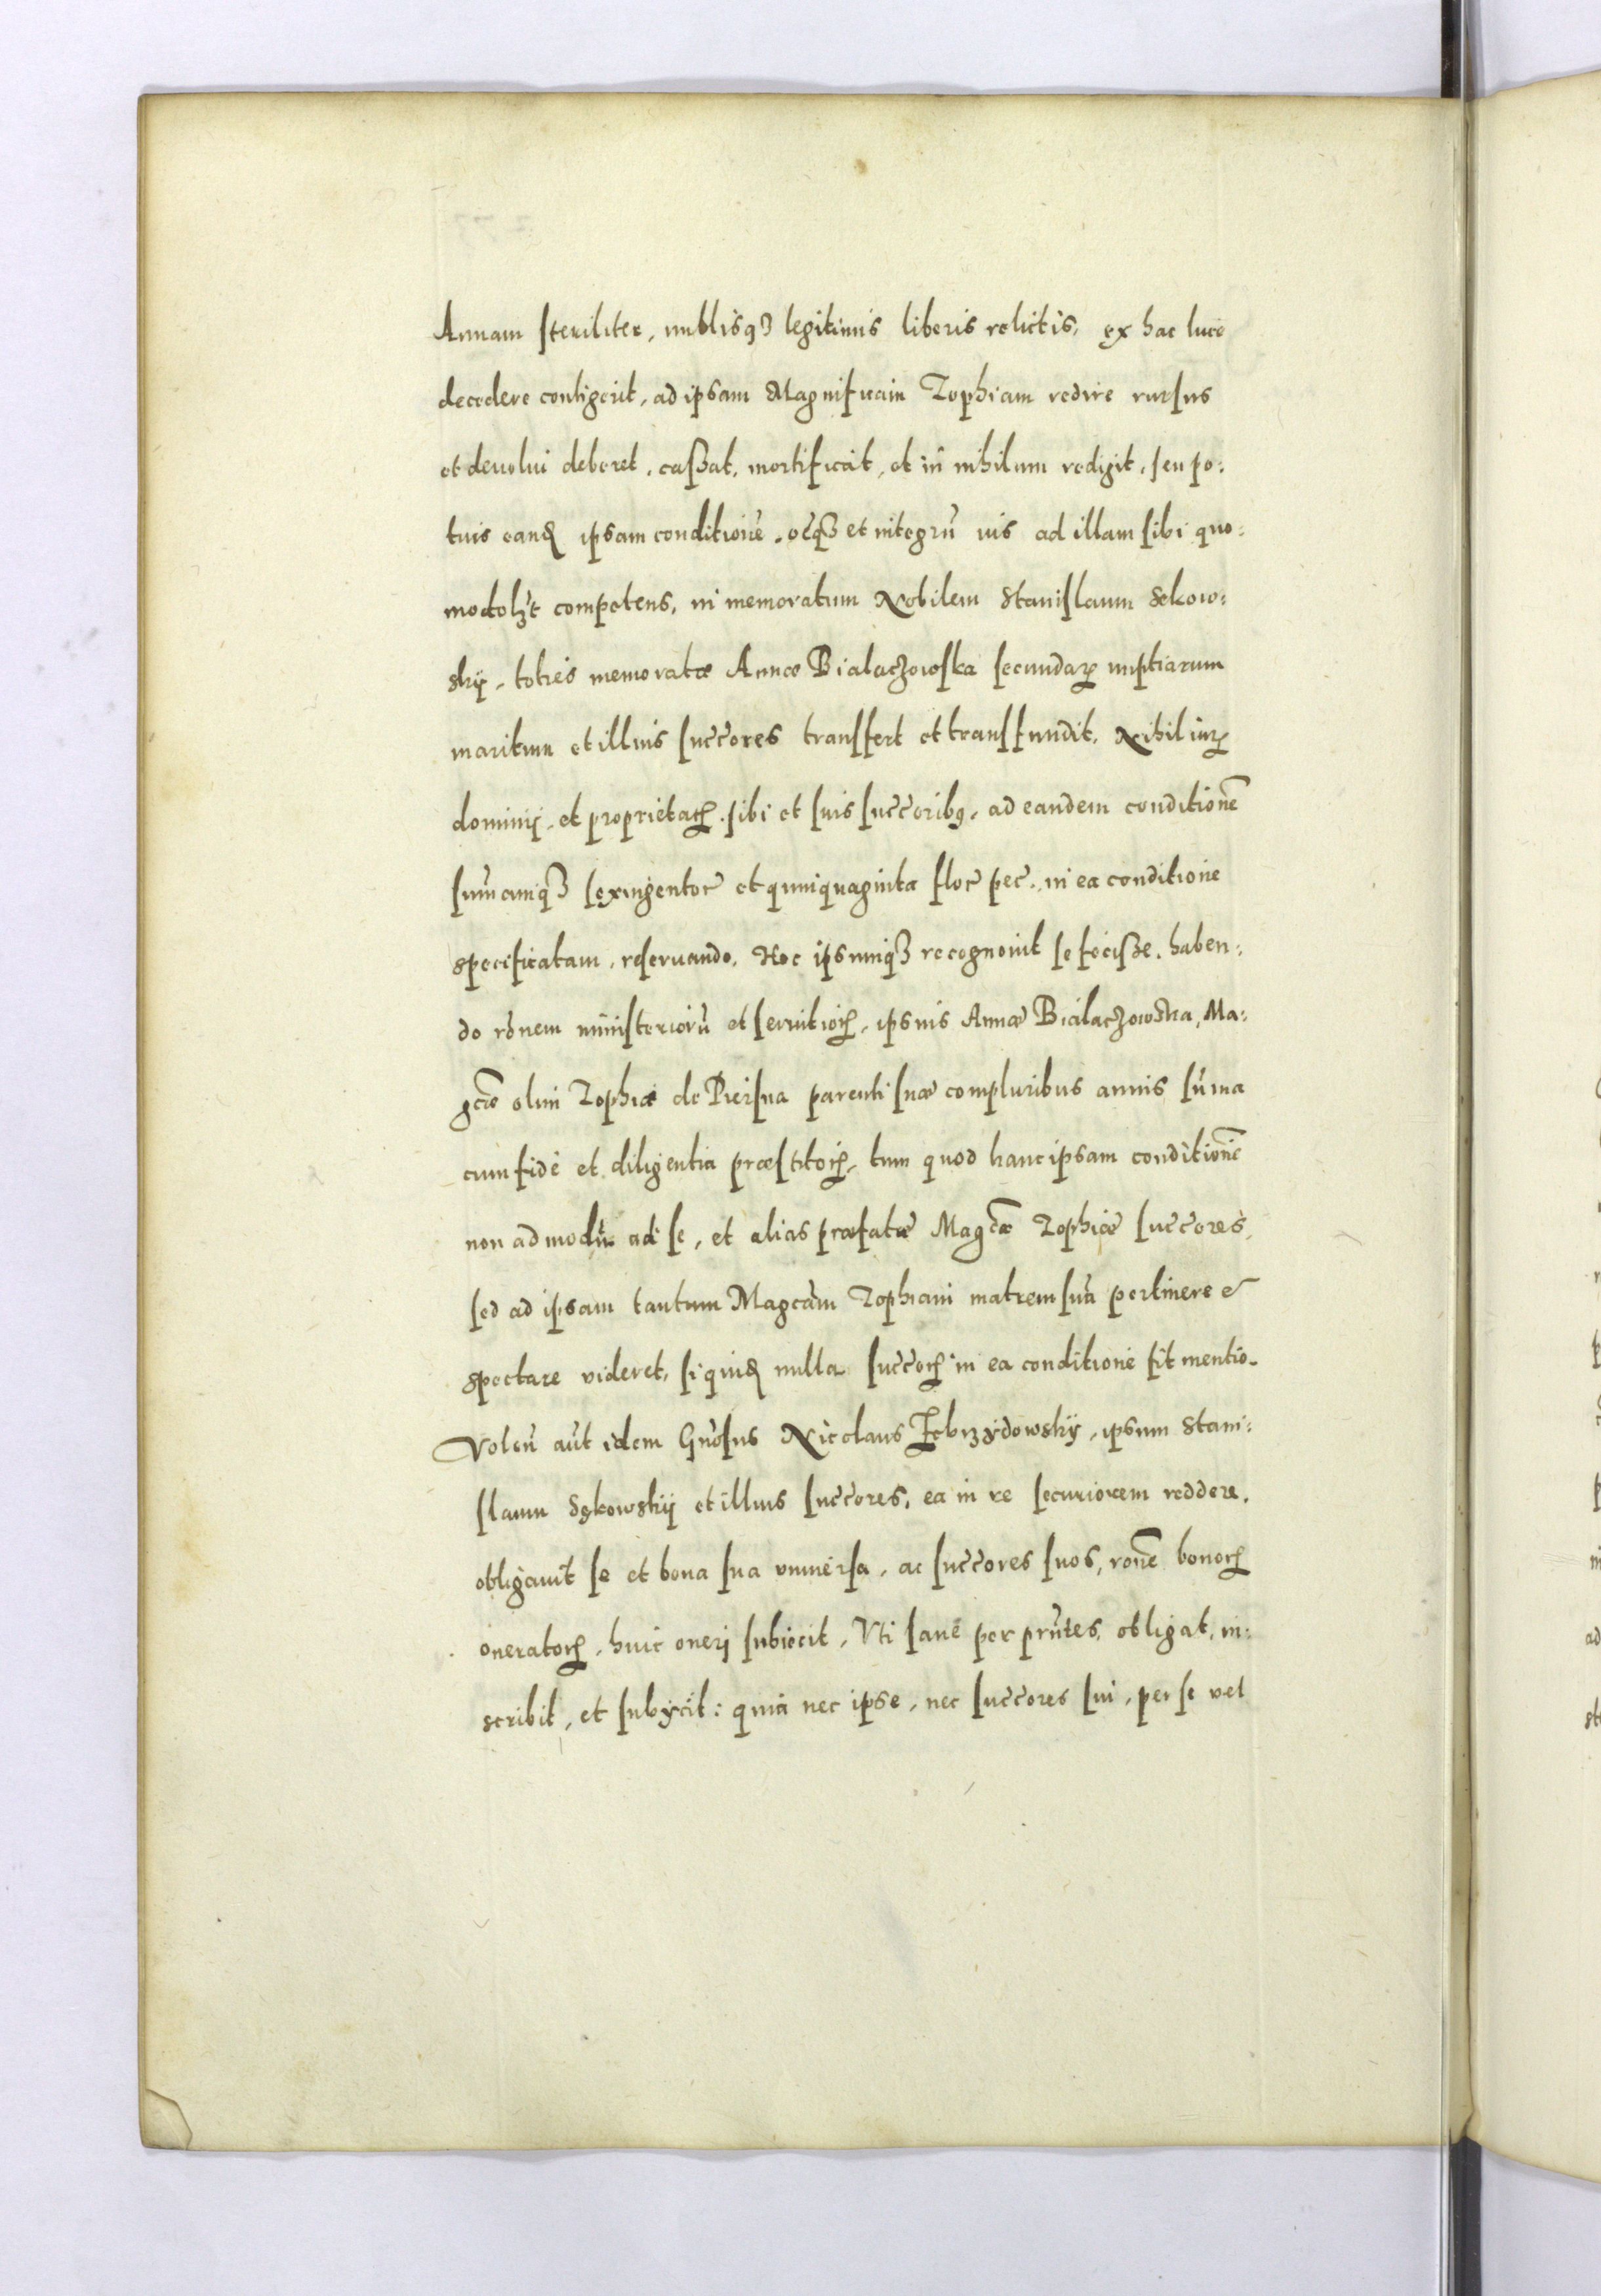 Annam steriliter, nullisqȝ legitimis liberis relictis, ex hac luce
decedere contigerit, ad ipsam Magnificam Zophiam redire rursus
et deuolui deberet, caßat, mortificat, et in nihilum redigit, seu po:
tuis eandē ipsam conditionē, oēqȝ et integrū ius ad illam sibi quo:
modolȝt competens, in memoratum Nobilem Stanislaum Sekow:
skÿ, toties memoratæ Annæ Bialaczowska secundarꝝ nuptiarum
maritum et illius succ̄ores transfert et transfundit, Nihil iurꝝ
dominÿ, et proprietatꝭ, sibi et suis succ̄oribꝯ, ad eandem conditionē
sum̄amqȝ sexingentor̄ et quinquaginta flor̄ pec̄. in ea conditione
specificatam, reseruando, Hoc ipsumqȝ recognouit se fecisse, haben:
do rōnem ministeriorū et seruitioꝝ, ipsius Annæ Bialaczowska, Ma:
gc̄æ olim Zophiæ de Piersna parenti suæ compluribus annis sūma
cum fide et diligentia præstitoꝝ, tum quod hanc ipsam conditionē
non admodū ad se, et alias præfatæ Magc̄æ Zophiæ succ̄ores,
sed ad ipsam tantum Magc̄am Zophiam matrem suā pertinere &
spectare videret, siquidē nulla succ̄oꝝ in ea conditione fit mentio.
Volen̄ aūt idem Gn̄osus Nicolaus Zebrzÿdowskÿ, ipsum Stani:
slaum Sękowskÿ et illius succ̄ores, ea in re securiorem reddere,
obligauit se et bona sua vniuersa, ac succ̄ores suos, rōne bonoꝝ
oneratoꝝ, huic oneri subiecit, Vti sane per prn̄tes, obligat, in:
scribit, et subÿcit: quia nec ipse, nec succ̄ores sui, per se vel